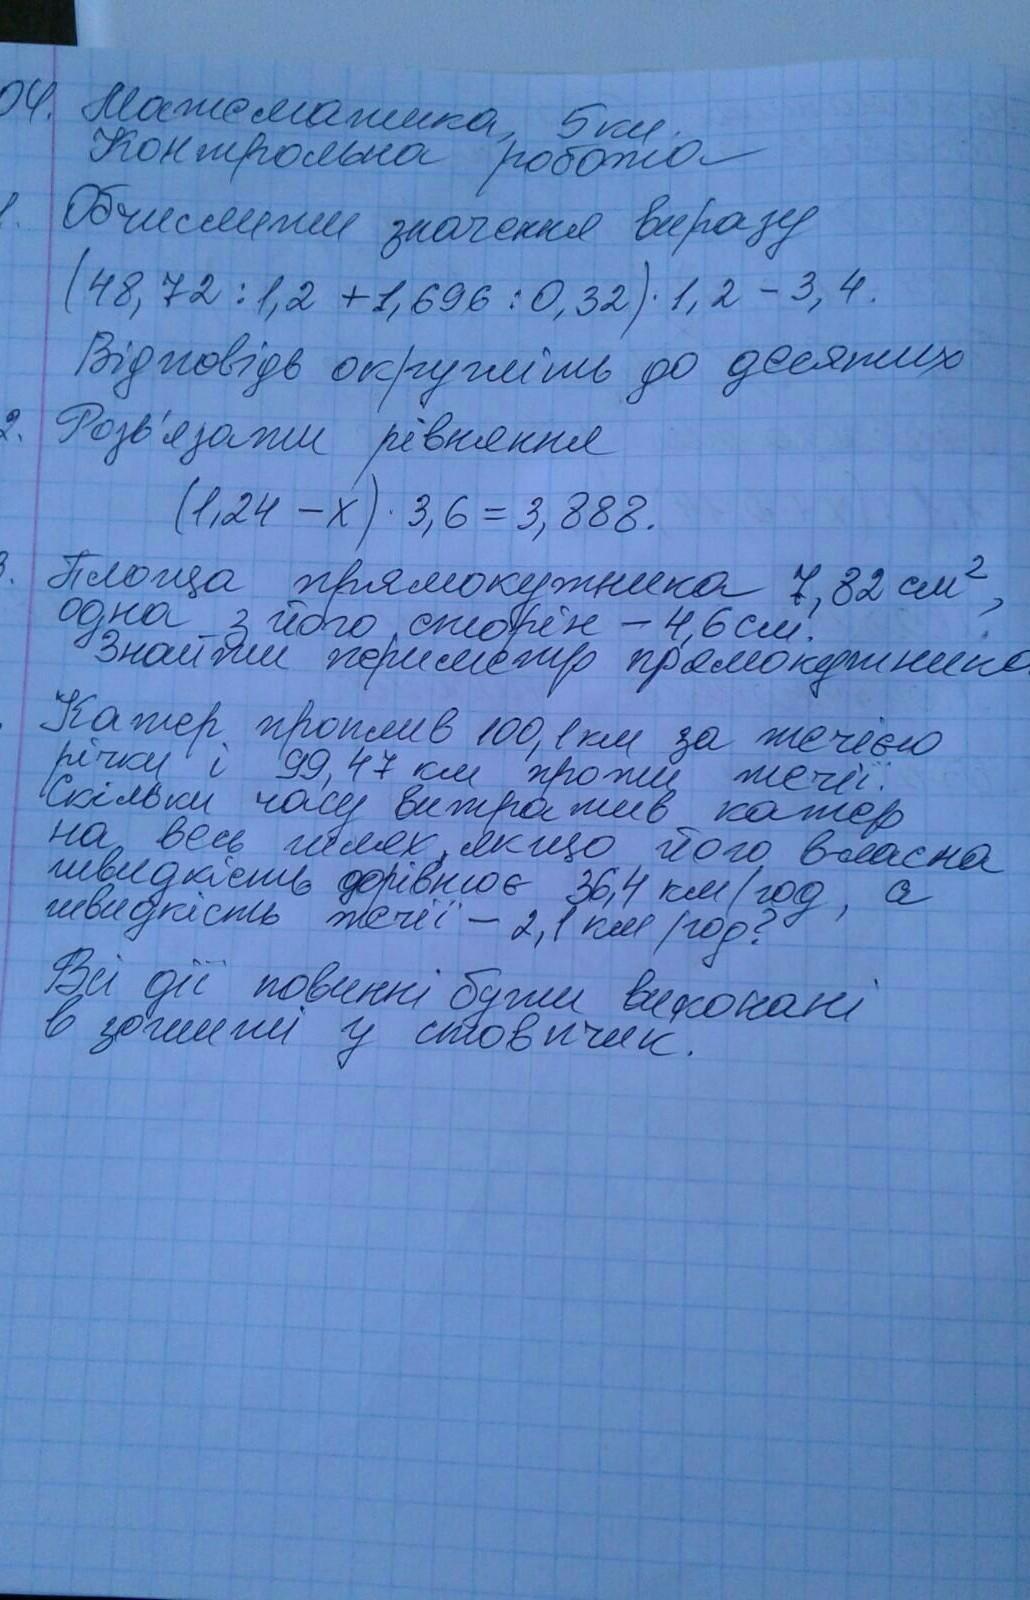 04. Математика, 5 кл.
Контрольна робота
1. Обчислити значення виразу
(48,72 : 1,2 + 1,696 : 0,32) · 1,2 - 3,4.
Відповідь округліть до десятих
2. Розв'язати рівняння
(1,24 - x) · 3,6 = 3,888.
3. Площа прямокутника 7,82 см²,
одна з його сторін - 4,6 см.
Знайти периметр прямокутника.
Катер проплив 100,1 км за течією
річки і 99,47 км проти течії.
Скільки часу витратив катер
на весь шлях, якщо його власна
швидкість дорівнює 36,4 км/год, а
швидкість течії - 2,1 км/год?
Всі дії повинні бути виконані
в зошиті у стовпчик.